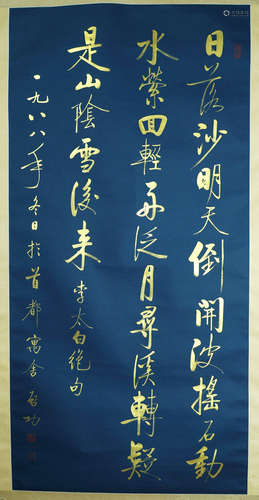 日落沙明天倒開波搖石動
水縈回輕舟泛月尋溪轉疑
是山陰雪後来 李太白絶句
一九八八年冬日於首都寓舍 啓功